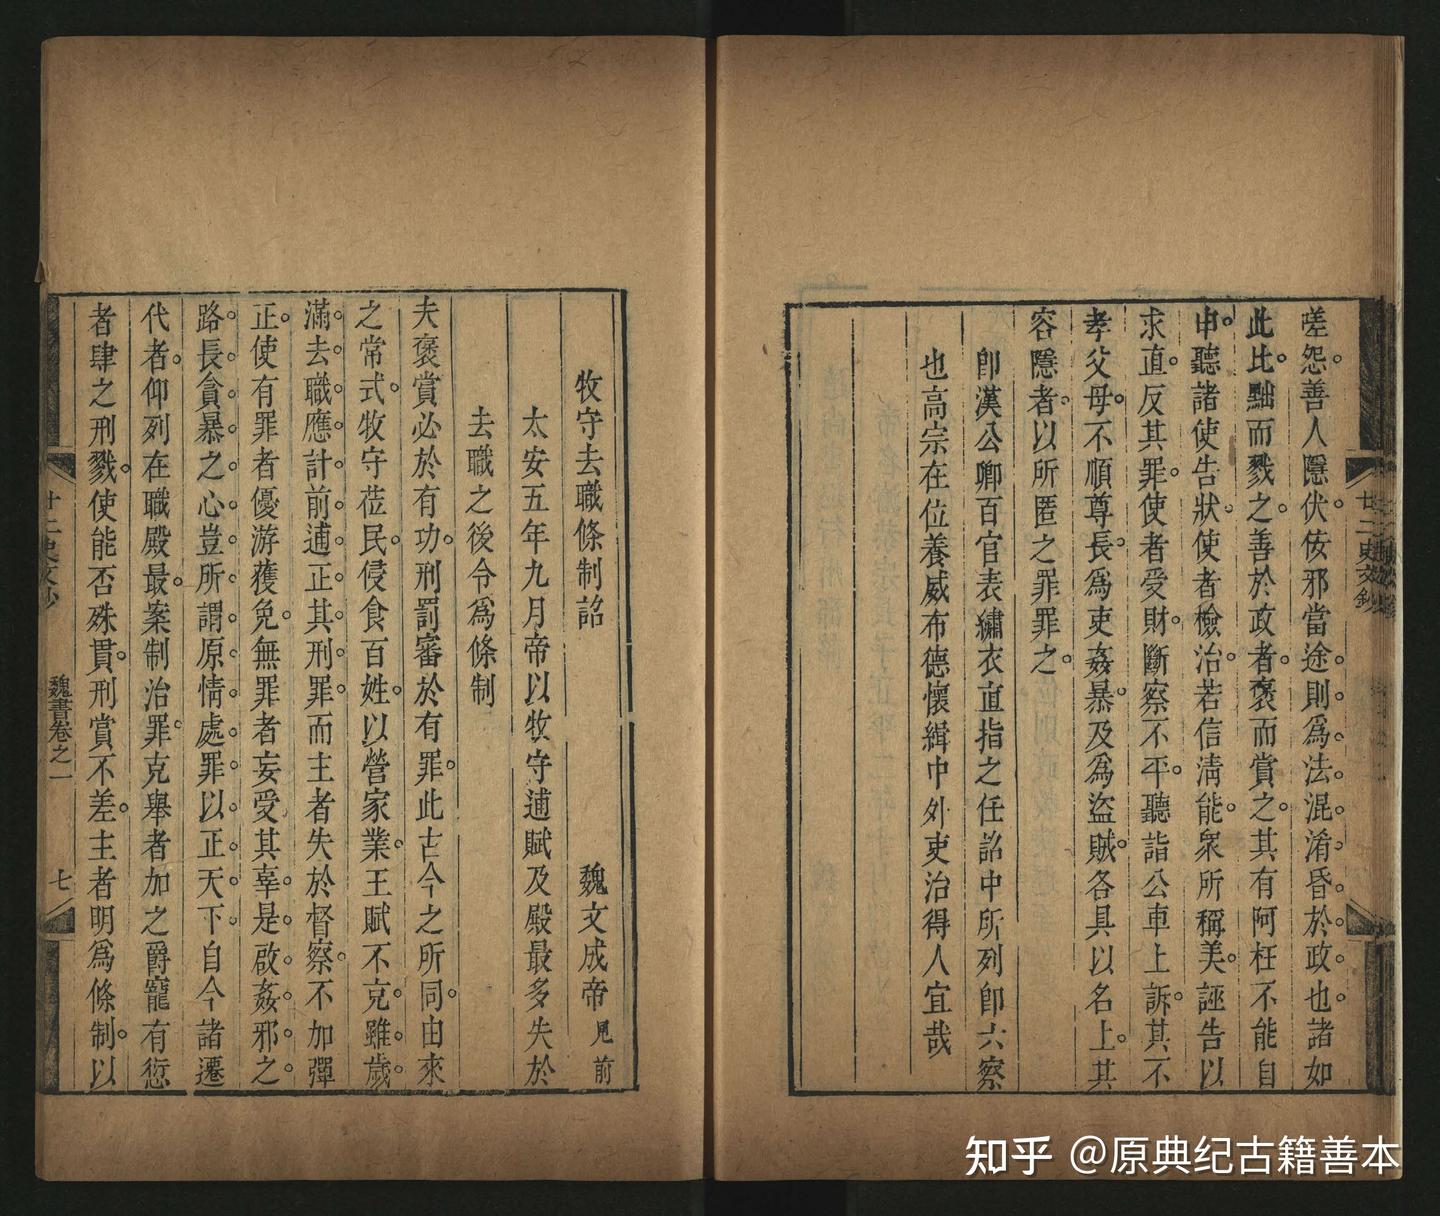 嗟怨善人隱伏佞邪當途則爲法混淆昏於政也諸如
此比黜而戮之善於政者褒而賞之其有阿枉不能自
申聽諸使告狀使者檢治若信淸能衆所稱美誣告以
求直反其罪使者受財斷察不平聽詣公車上訴其不
孝父母不順尊長爲吏姦暴及爲盜賊各具以名上其
容隱者以所匿之罪罪之
卽漢公卿百官表繡衣直指之任詔中所列卽六察
也高宗在位養威布德懷緝中外吏治得人宜哉
廿二史文鈔
牧守去職條制詔 魏文成帝 見前
太安五年九月帝以牧守逋賦及殿最多失於
去職之後令爲條制
夫褒賞必於有功刑罰審於有罪此古今之所同由來
之常式牧守莅民侵食百姓以營家業王賦不克雖歲
滿去職應計前逋正其刑罪而主者失於督察不加彈
正使有罪者優游獲免無罪者妄受其辜是啟姦邪之
路長貪暴之心豈所謂原情處罪以正天下自今諸遷
代者仰列在職殿最案制治罪克舉者加之爵寵有愆
者肆之刑戮使能否殊貫刑賞不差主者明爲條制以
廿二史文鈔 魏書卷之一 七
知乎 @原典纪古籍善本